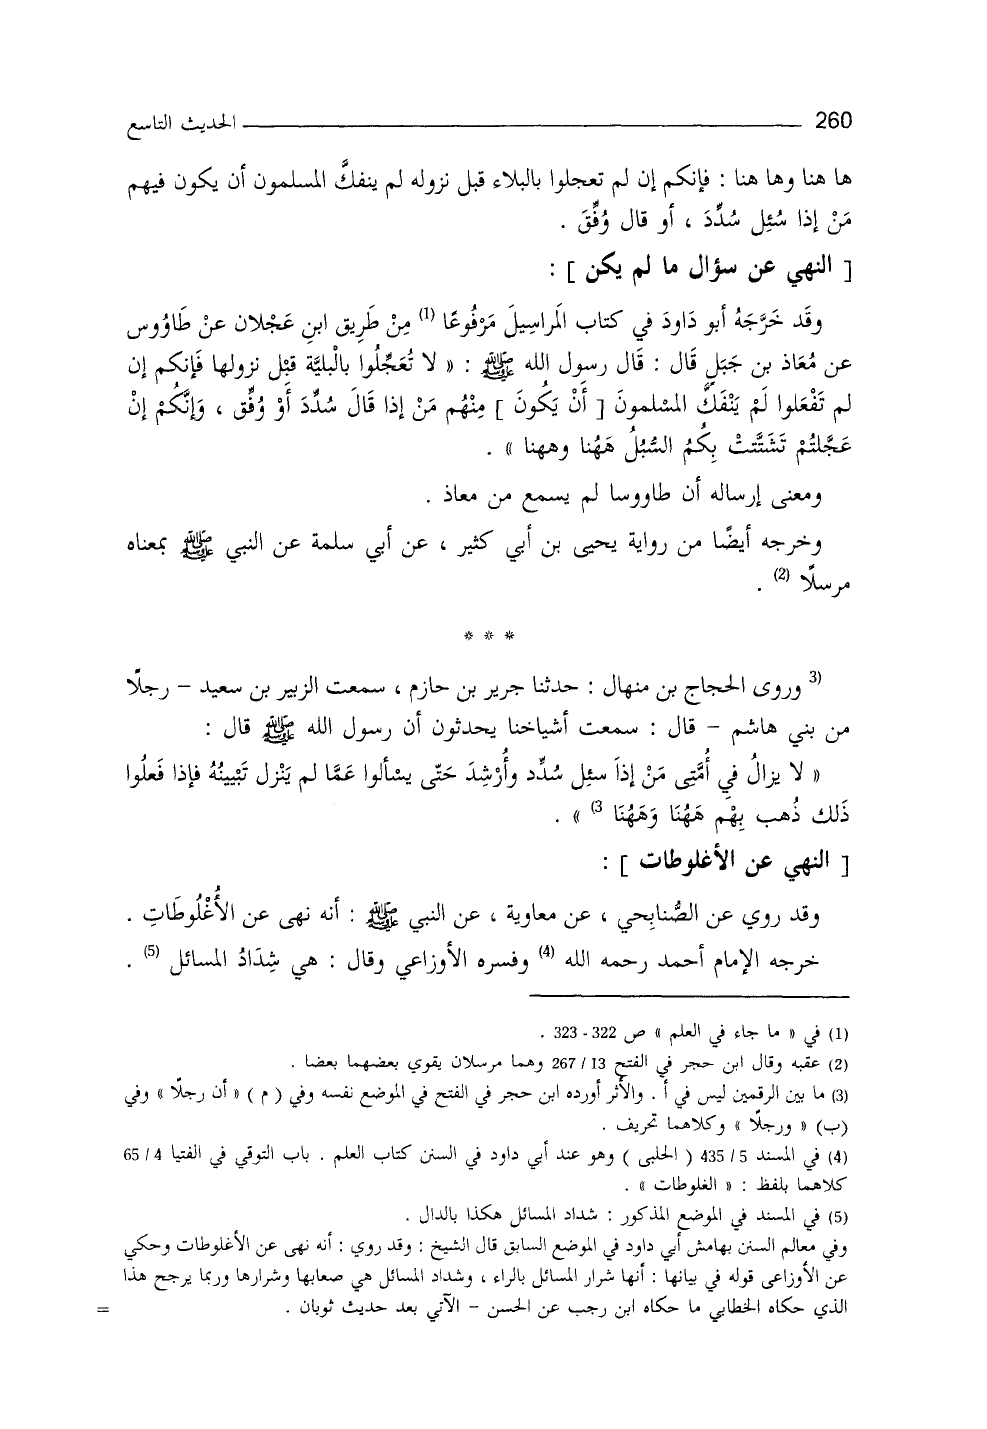 260 الحديث التاسع
ها هنا وها هنا : فإنكم إن لم تعجلوا بالبلاء قبل نزوله لم ينفكَّ المسلمون أن يكون فيهم
مَنْ إذا سُئِل سُدِّدَ ، أو قال وُفِّقَ .
[ النهي عن سؤال ما لم يكن ] :
وقَد خَرَّجَهُ أبو دَاودَ في كتاب المَراسِيلَ مَرْفُوعًا (1) مِنْ طَرِيق ابنِ عَجْلان عنْ طَاوُوس
عن مُعَاذ بن جَبَلٍ قَال : قَال رسول الله ﷺ : « لا تُعَجِّلُوا بالْبليَّة قبْل نزولها فَإنكم إن
لم تَفْعَلوا لَمْ يَنْفَكَّ المسْلمونَ [ أَنْ يَكُونَ ] مِنْهُم مَنْ إذا قَالَ سُدِّدَ أَوْ وُفِّق ، وَإنَّكُمْ إنْ
عَجَّلتُمْ تَشَتَّتتْ بِكُمُ السُّبُلُ هَهُنا وههنا » .
ومعنى إرساله أن طاووسا لم يسمع من معاذ .
وخرجه أيضًا من رواية يحيى بن أبي كثير ، عن أبي سلمة عن النبي ﷺ بمعناه
مرسلًا (2) .
* * *
(3 وروى الحجاج بن منهال : حدثنا جرير بن حازم ، سمعت الزبير بن سعيد – رجلًا
من بني هاشم – قال : سمعت أشياخنا يحدثون أن رسول الله ﷺ قال :
« لا يزالُ في أُمَّتِى مَنْ إذاَ سئِل سُدِّد وأُرْشِدَ حَتّى يسْألوا عَمَّا لم يَنْزل تَبْيينُهُ فإذا فَعلُوا
ذَلك ذُهب بِهْم هَهُنَا وَهَهُنَا 3) » .
[ النهي عن الأغلوطات ] :
وقد روي عن الصُّنابِحي ، عن معاوية ، عن النبي ﷺ : أنه نهى عن الأُغْلُوطَاتِ .
خرجه الإمام أحمد رحمه الله (4) وفسره الأوزاعي وقال : هي شِدَادُ المسائل (5) .
(1) في « ما جاء في العلم » ص 322 - 323 .
(2) عقبه وقال ابن حجر في الفتح 13 / 267 وهما مرسلان يقوي بعضهما بعضا .
(3) ما بين الرقمين ليس في أ . والأثر أورده ابن حجر في الفتح في الموضع نفسه وفي ( م ) « أن رجلًا » وفي
(ب) « ورجلًا » وكلاهما تحريف .
(4) في المسند 5 / 435 ( الحلبى ) وهو عند أبي داود في السنن كتاب العلم . باب التوقي في الفتيا 4 / 65
كلاهما بلفظ : « الغلوطات » .
(5) في المسند في الموضع المذكور : شداد المسائل هكذا بالدال .
وفي معالم السنن بهامش أبي داود في الموضع السابق قال الشيخ : وقد روي : أنه نهى عن الأغلوطات وحكي
عن الأوزاعى قوله في بيانها : أنها شرار المسائل بالراء ، وشداد المسائل هي صعابها وشرارها وربما يرجح هذا
الذي حكاه الخطابي ما حكاه ابن رجب عن الحسن – الآتي بعد حديث ثوبان . =